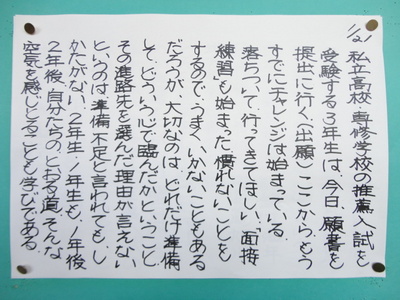 1/21
私立高校・専修学校の推薦入試を
受験する3年生は、今日、願書を
提出に行く(出願)ここから、もう
すでにチャレンジは始まっている。
落ちついて行ってきてほしい。面接
練習も始まった。慣れないことを
するので、うまくいかないこともある
だろうが、大切なのは、どれだけ準備
して、どういう心で臨んだかということ
その進路先を選んだ理由が言えない
というのは準備不足と言われても、し
かたがない。2年生・1年生も、1年後
2年後、自分たちのとおる道。そんな
空気を感じとることも学びである